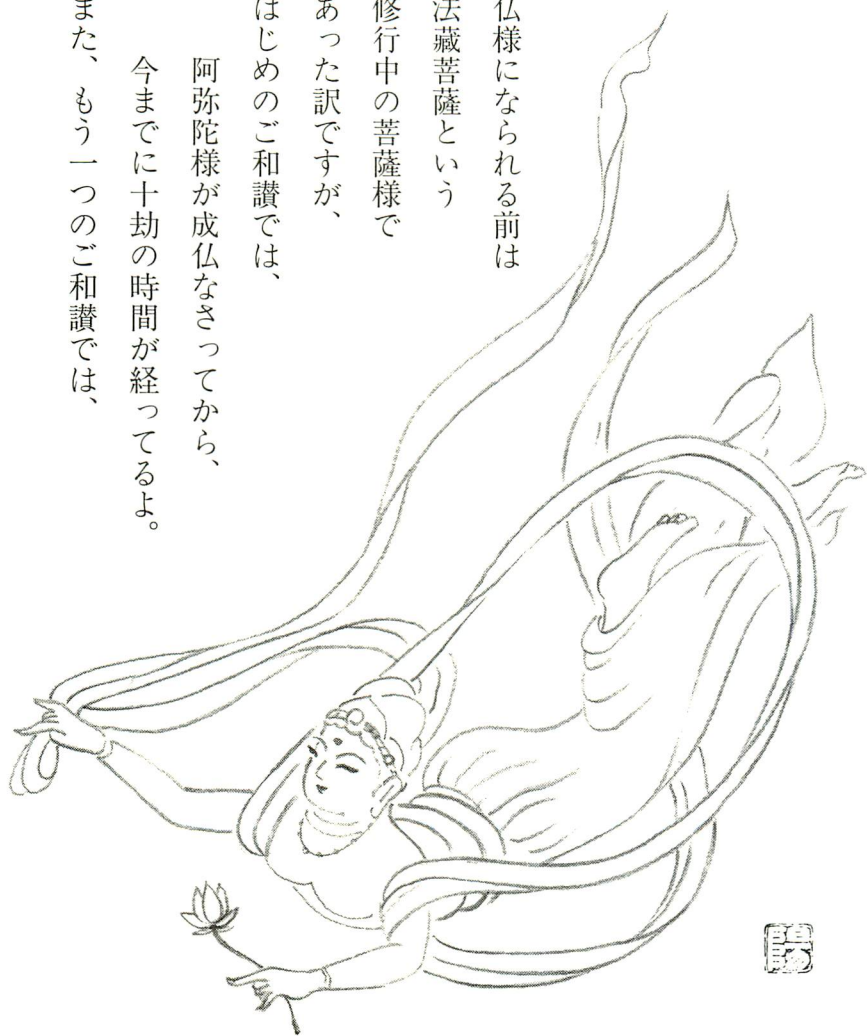 仏様になられる前は
法藏菩薩という
修行中の菩薩様で
あった訳ですが、
はじめのご和讃では、
阿弥陀様が成仏なさってから、
今までに十劫の時間が経ってるよ。
また、もう一つのご和讃では、